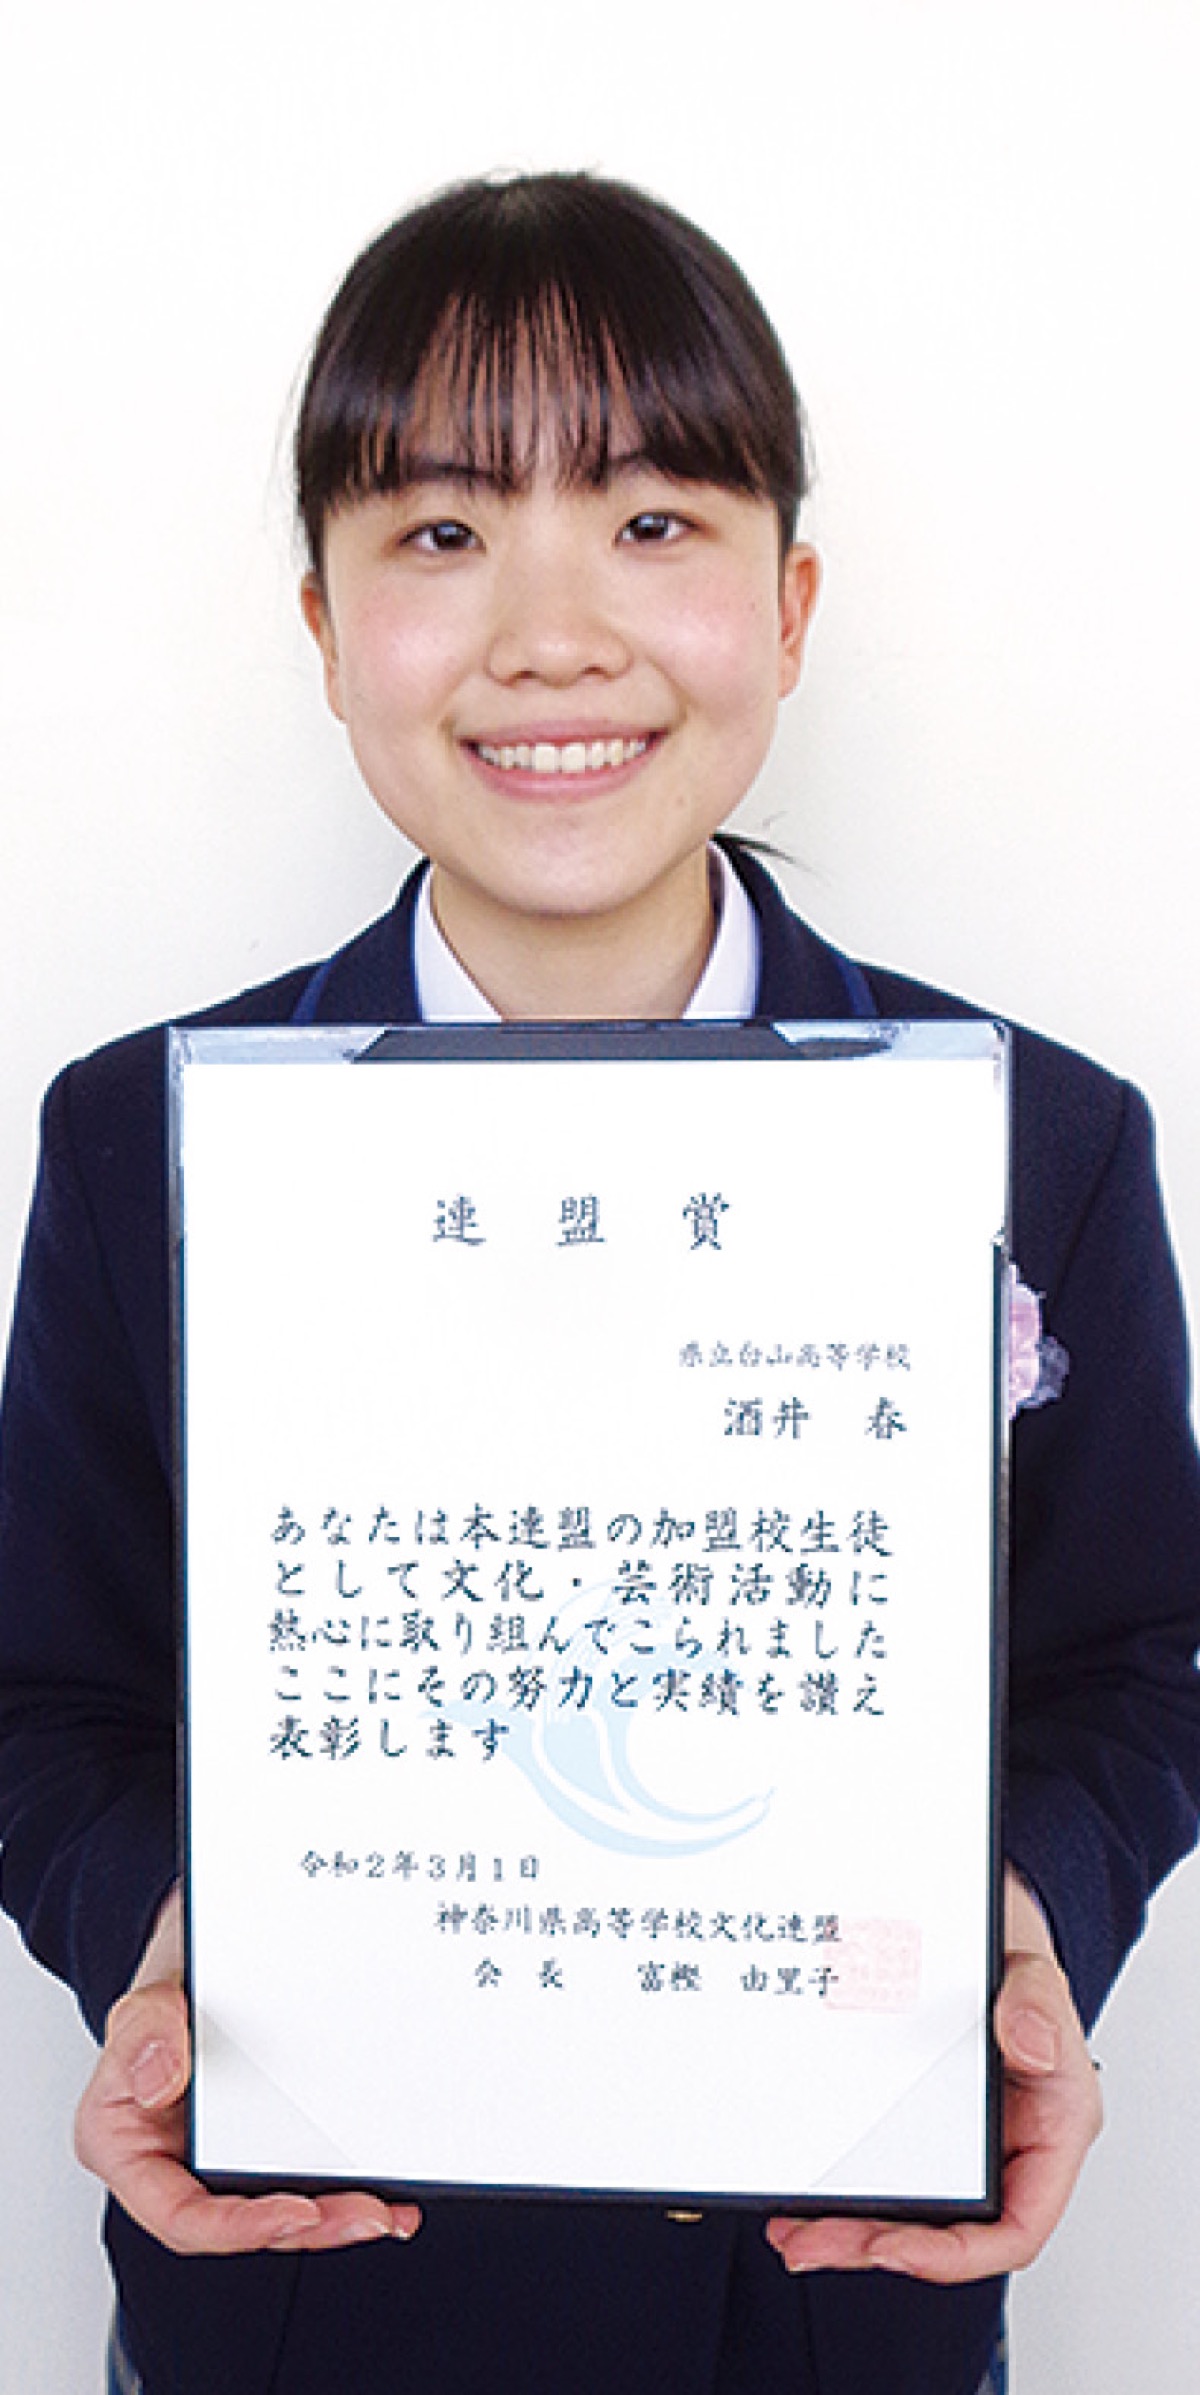 連盟賞
県立白山高等学校
酒井 春
あなたは本連盟の加盟校生徒
として文化・芸術活動に
熱心に取り組んでこられました
ここにその努力と実績を讃え
表彰します
令和2年3月1日
神奈川県高等学校文化連盟
会長 富樫 由里子